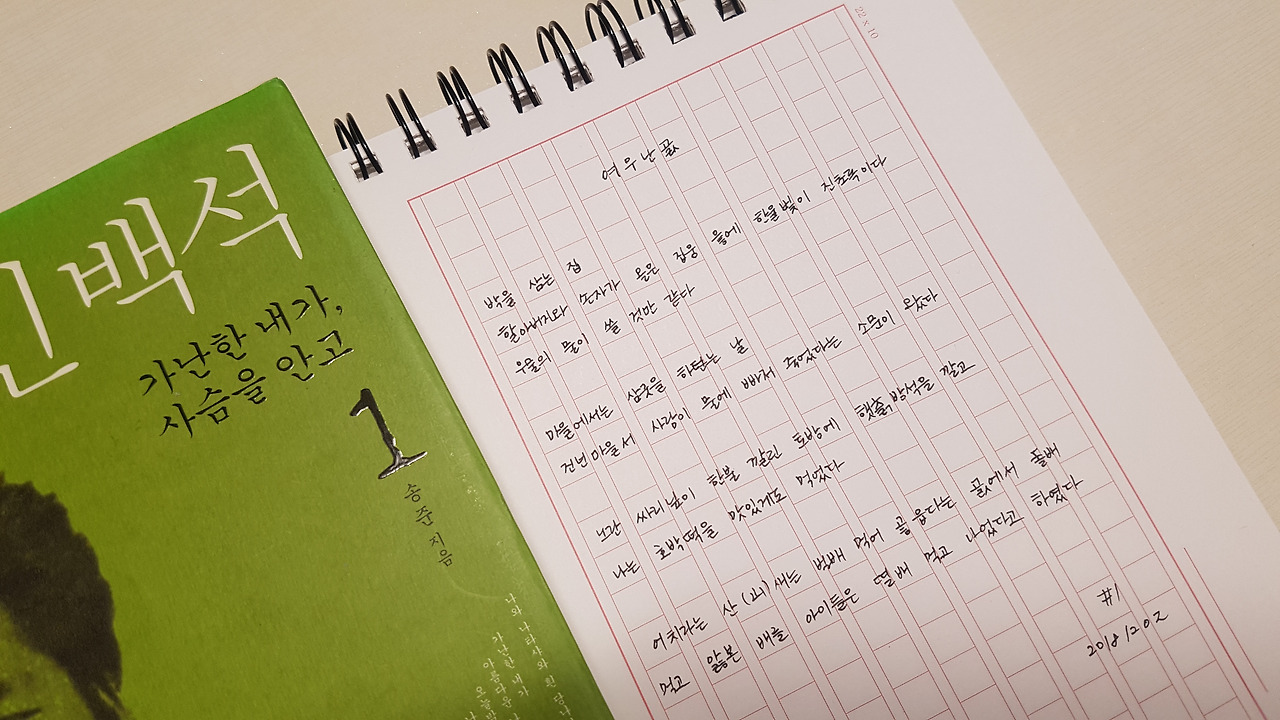 인 백석
가난한 내가,
사슴을 안고
1
송준 지음
나와 나타샤와 흰 당나
가난한 내가
아름다운 나
오늘밤
22 x 10
여우난곬
박을 삼는 집
할아버지와 손자가 올은 집웅 울에 한울빛이 진초록이다
우물의 물이 쓸 것만 같다
마을에서는 삼굿을 하탄는 날
건넌마을서 사람이 물에 빠저 죽었다는 소문이 왔다
난간 싸리닢이 한불 깔린 토방에 햇츩방석을 깔고
나는 호박떡을 맛있게도 먹었다
어치라는 산(山)새는 벌배 먹어 곻읍다는 곬에서 돌배
먹고 앓븐 배를 아이들은 떨배 먹고 나었다고 하였다
#1
2018 12 02